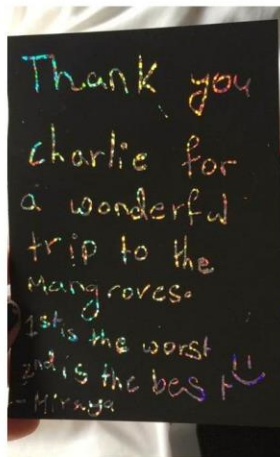 Thank you
charlie for
a wonderful
trip to the
Mangroves.
1st is the worst
2nd is the best
- Miraya